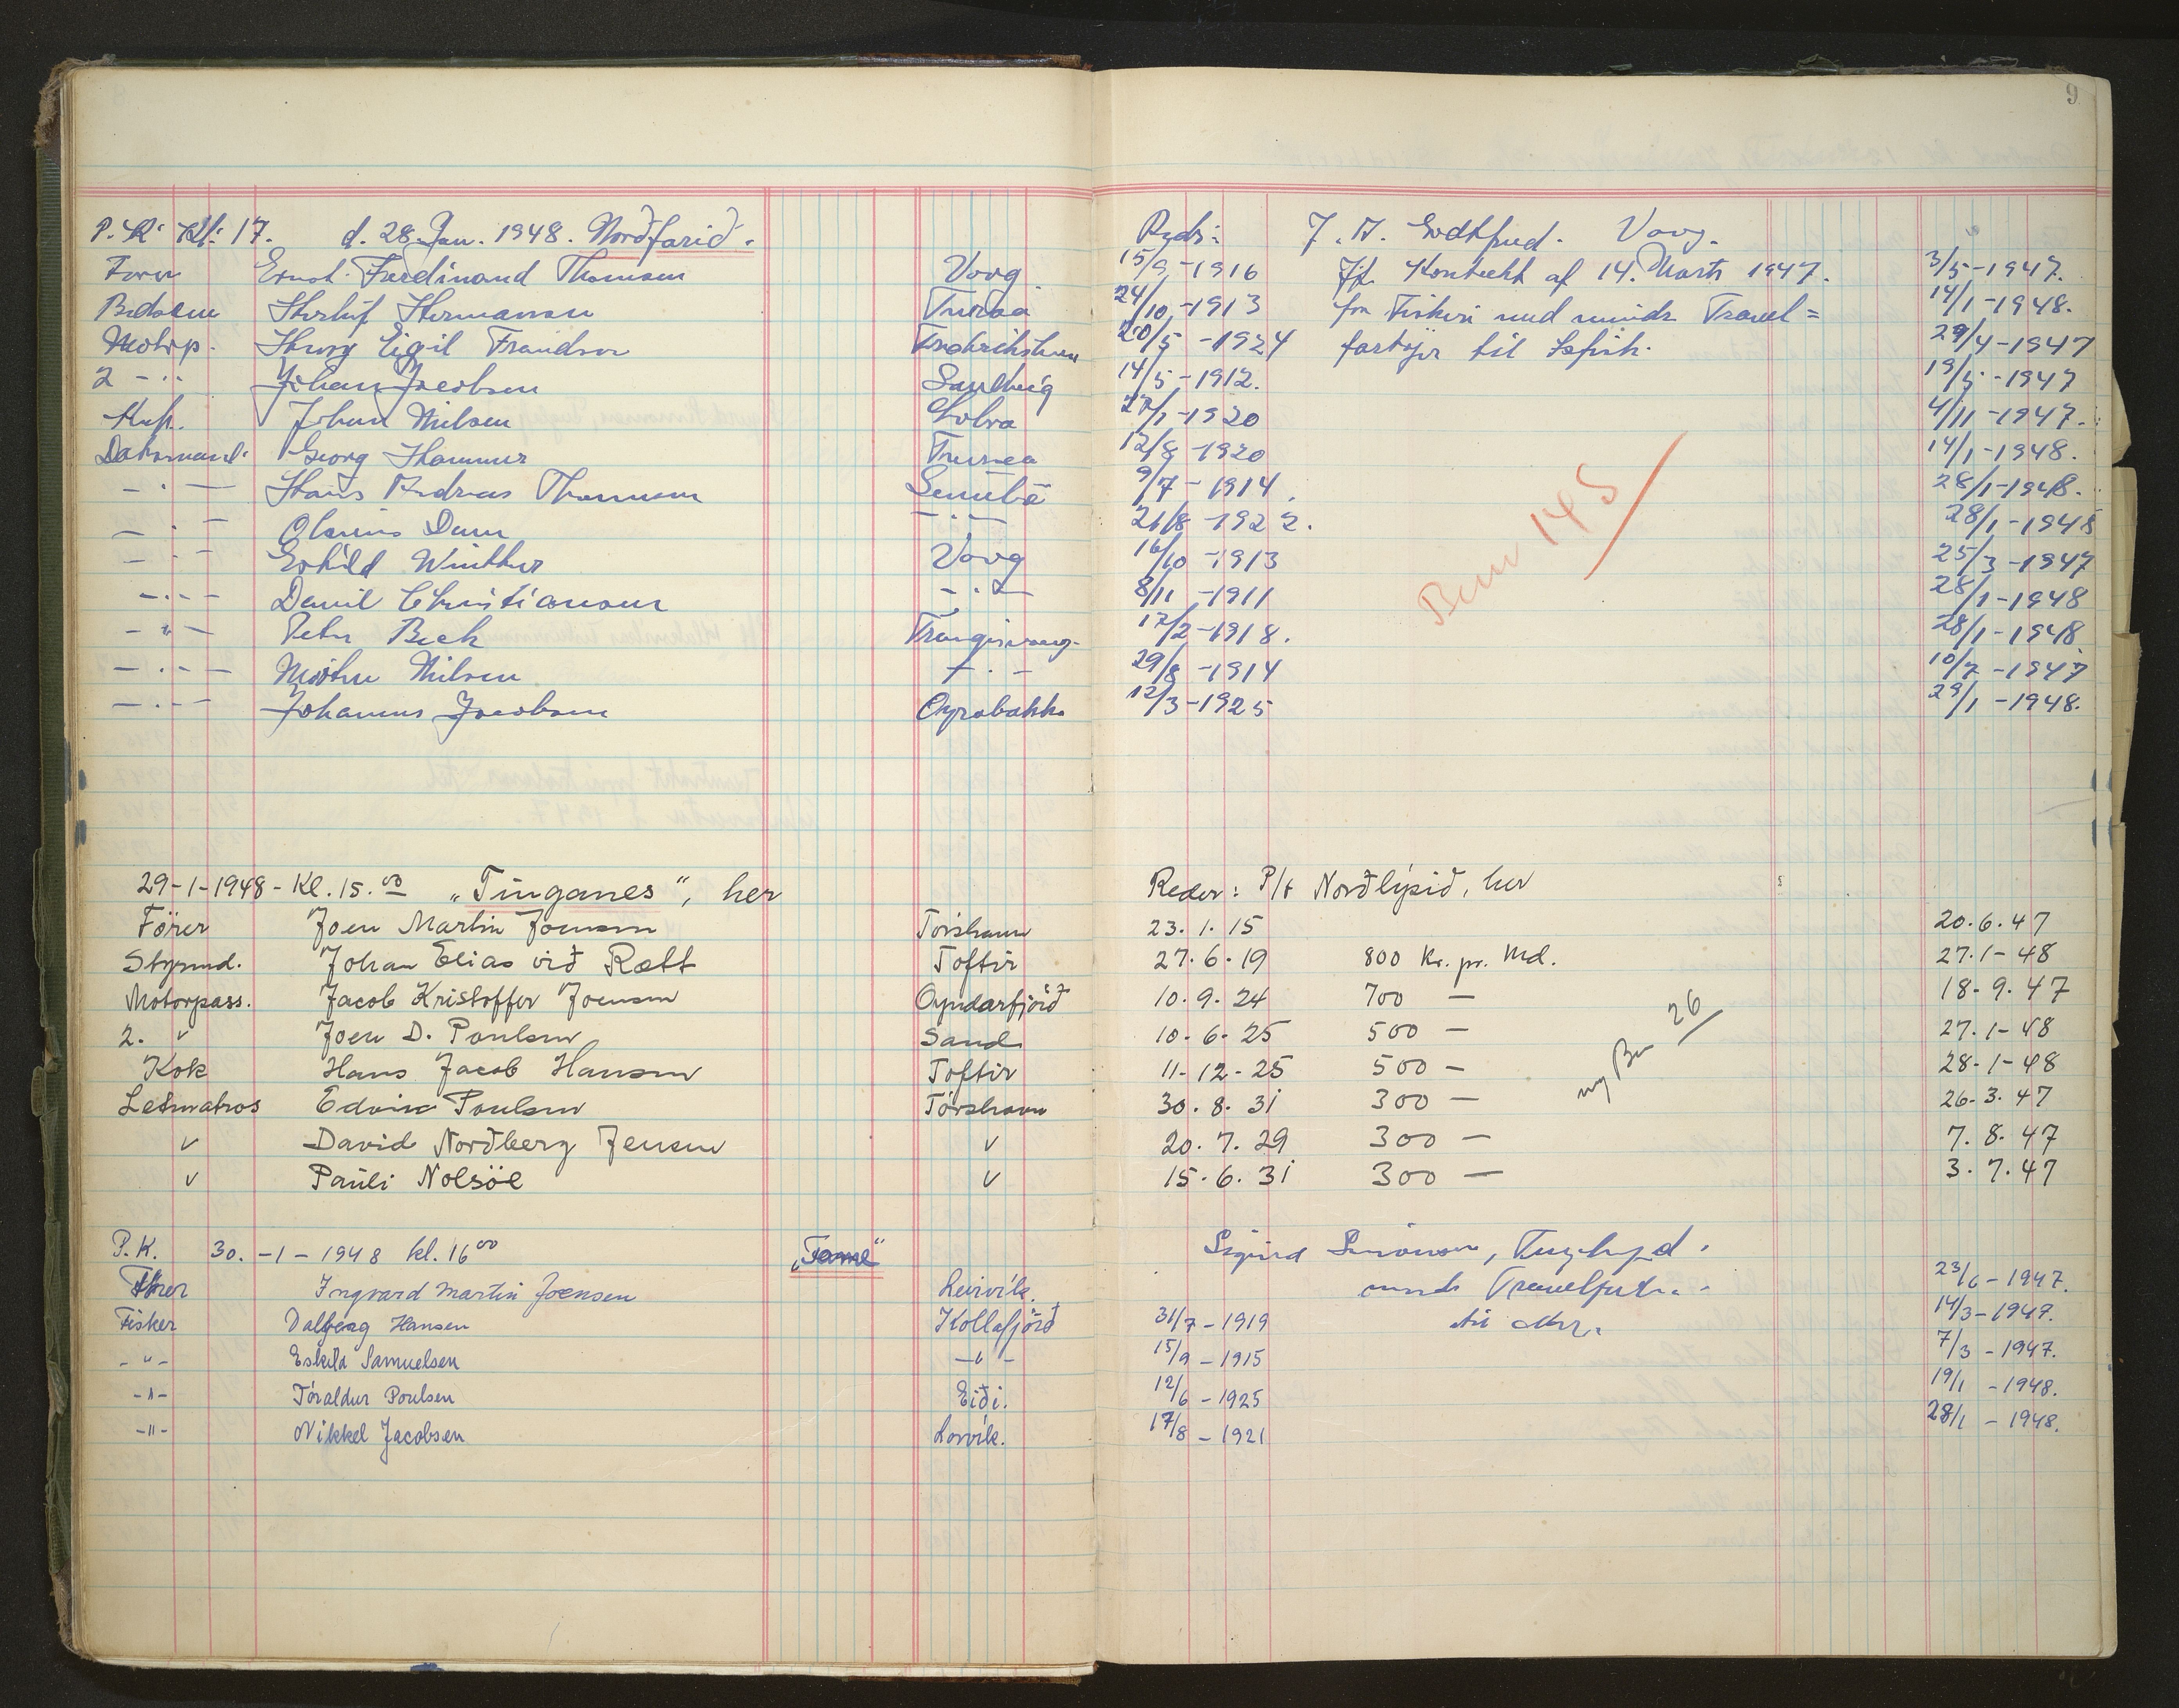 9
P. K. Kl. 17. d. 28. Jan. 1948. Norðfarið. Reder: J. A. Godtfred. Vaag.
Fører Ernst Ferdinand Thomsen Vaag 15/9-1916 Jfr. Kontrakt af 14. Marts 1947. 3/5-1947.
Bedstem Herluf Hermansen 24/10-1913 for Fiskeri med mindre Trawl= 14/1-1948.
Motorp. Eigil Frandsen Frederikshavn 20/5-1924 fartøjer til Isfisk. 29/4-1947
2 - " - Johan Jacobsen Sandvig 14/5-1912. 19/5-1947
Kok. Johan Nilsen 27/1-1920 4/11-1947.
Daksmand. Georg Hammer 12/8-1920 14/1-1948.
- " - Hans Andreas Thomsen Sumbø 9/7-1914. 28/1-1948.
- " - Olavus Dam - " - 21/8-1922. 28/1-1948
- " - Eskild Winther Vaag 16/10-1913 25/3-1947
- " - Daniel Christiansen - " - 8/11-1911 28/1-1948
- " - Peter Beck Trangisvaag 17/2-1918. 28/1-1948
- " - Nilsen - " - 29/8-1914 10/7-1947
- " - Johannus Jacobsen Oyrabakka 12/3-1925 29/1-1948.
Bem 145
29-1-1948 - Kl. 15.00 „Tinganes", her Reder: P/f Norðlýsið, her
Förer Joen Martin Joensen Tórshavn 23.1.15 20.6.47
Styrmd. Johan Elias við Rætt Toftir 27.6.19 800 Kr. pr. Md. 27.1-48
Motorpass. Jacob Kristoffer Joensen Oyndarfjörð 10.9.24 700 — 18-9.47
2. " Joen D. Poulsen Sand 10-6-25 500 — 27.1-48
Kok Hans Jacob Hansen Toftir 11-12-25 500 — 28-1-48
Letmatros Edvin Poulsen Tórshavn 30.8.31 300 — 26-3.47
" David Norðberg Jensen " 20.7.29 300 — 7.8.47
" Pauli Nolsöe " 15.6.31 300 — 3.7.47
26
P.K. 30.-1-1948 kl. 16 00 „Tame" Sigurd Simonsen, Fuglefjord.
Förer Ingvard Martin Joensen Leirvík. mindre Trawlfart. 23/6-1947.
Fisker Dalberg Hansen Kollafjörð 31/7-1919 14/3-1947.
- " - Eskild Samuelsen - " - 15/9-1915 7/3-1947.
- " - Tóraldur Poulsen Eiði. 12/6-1925 19/1-1948.
- " - Nikkel Jacobsen Lorvík. 17/8-1921 28/1-1948.